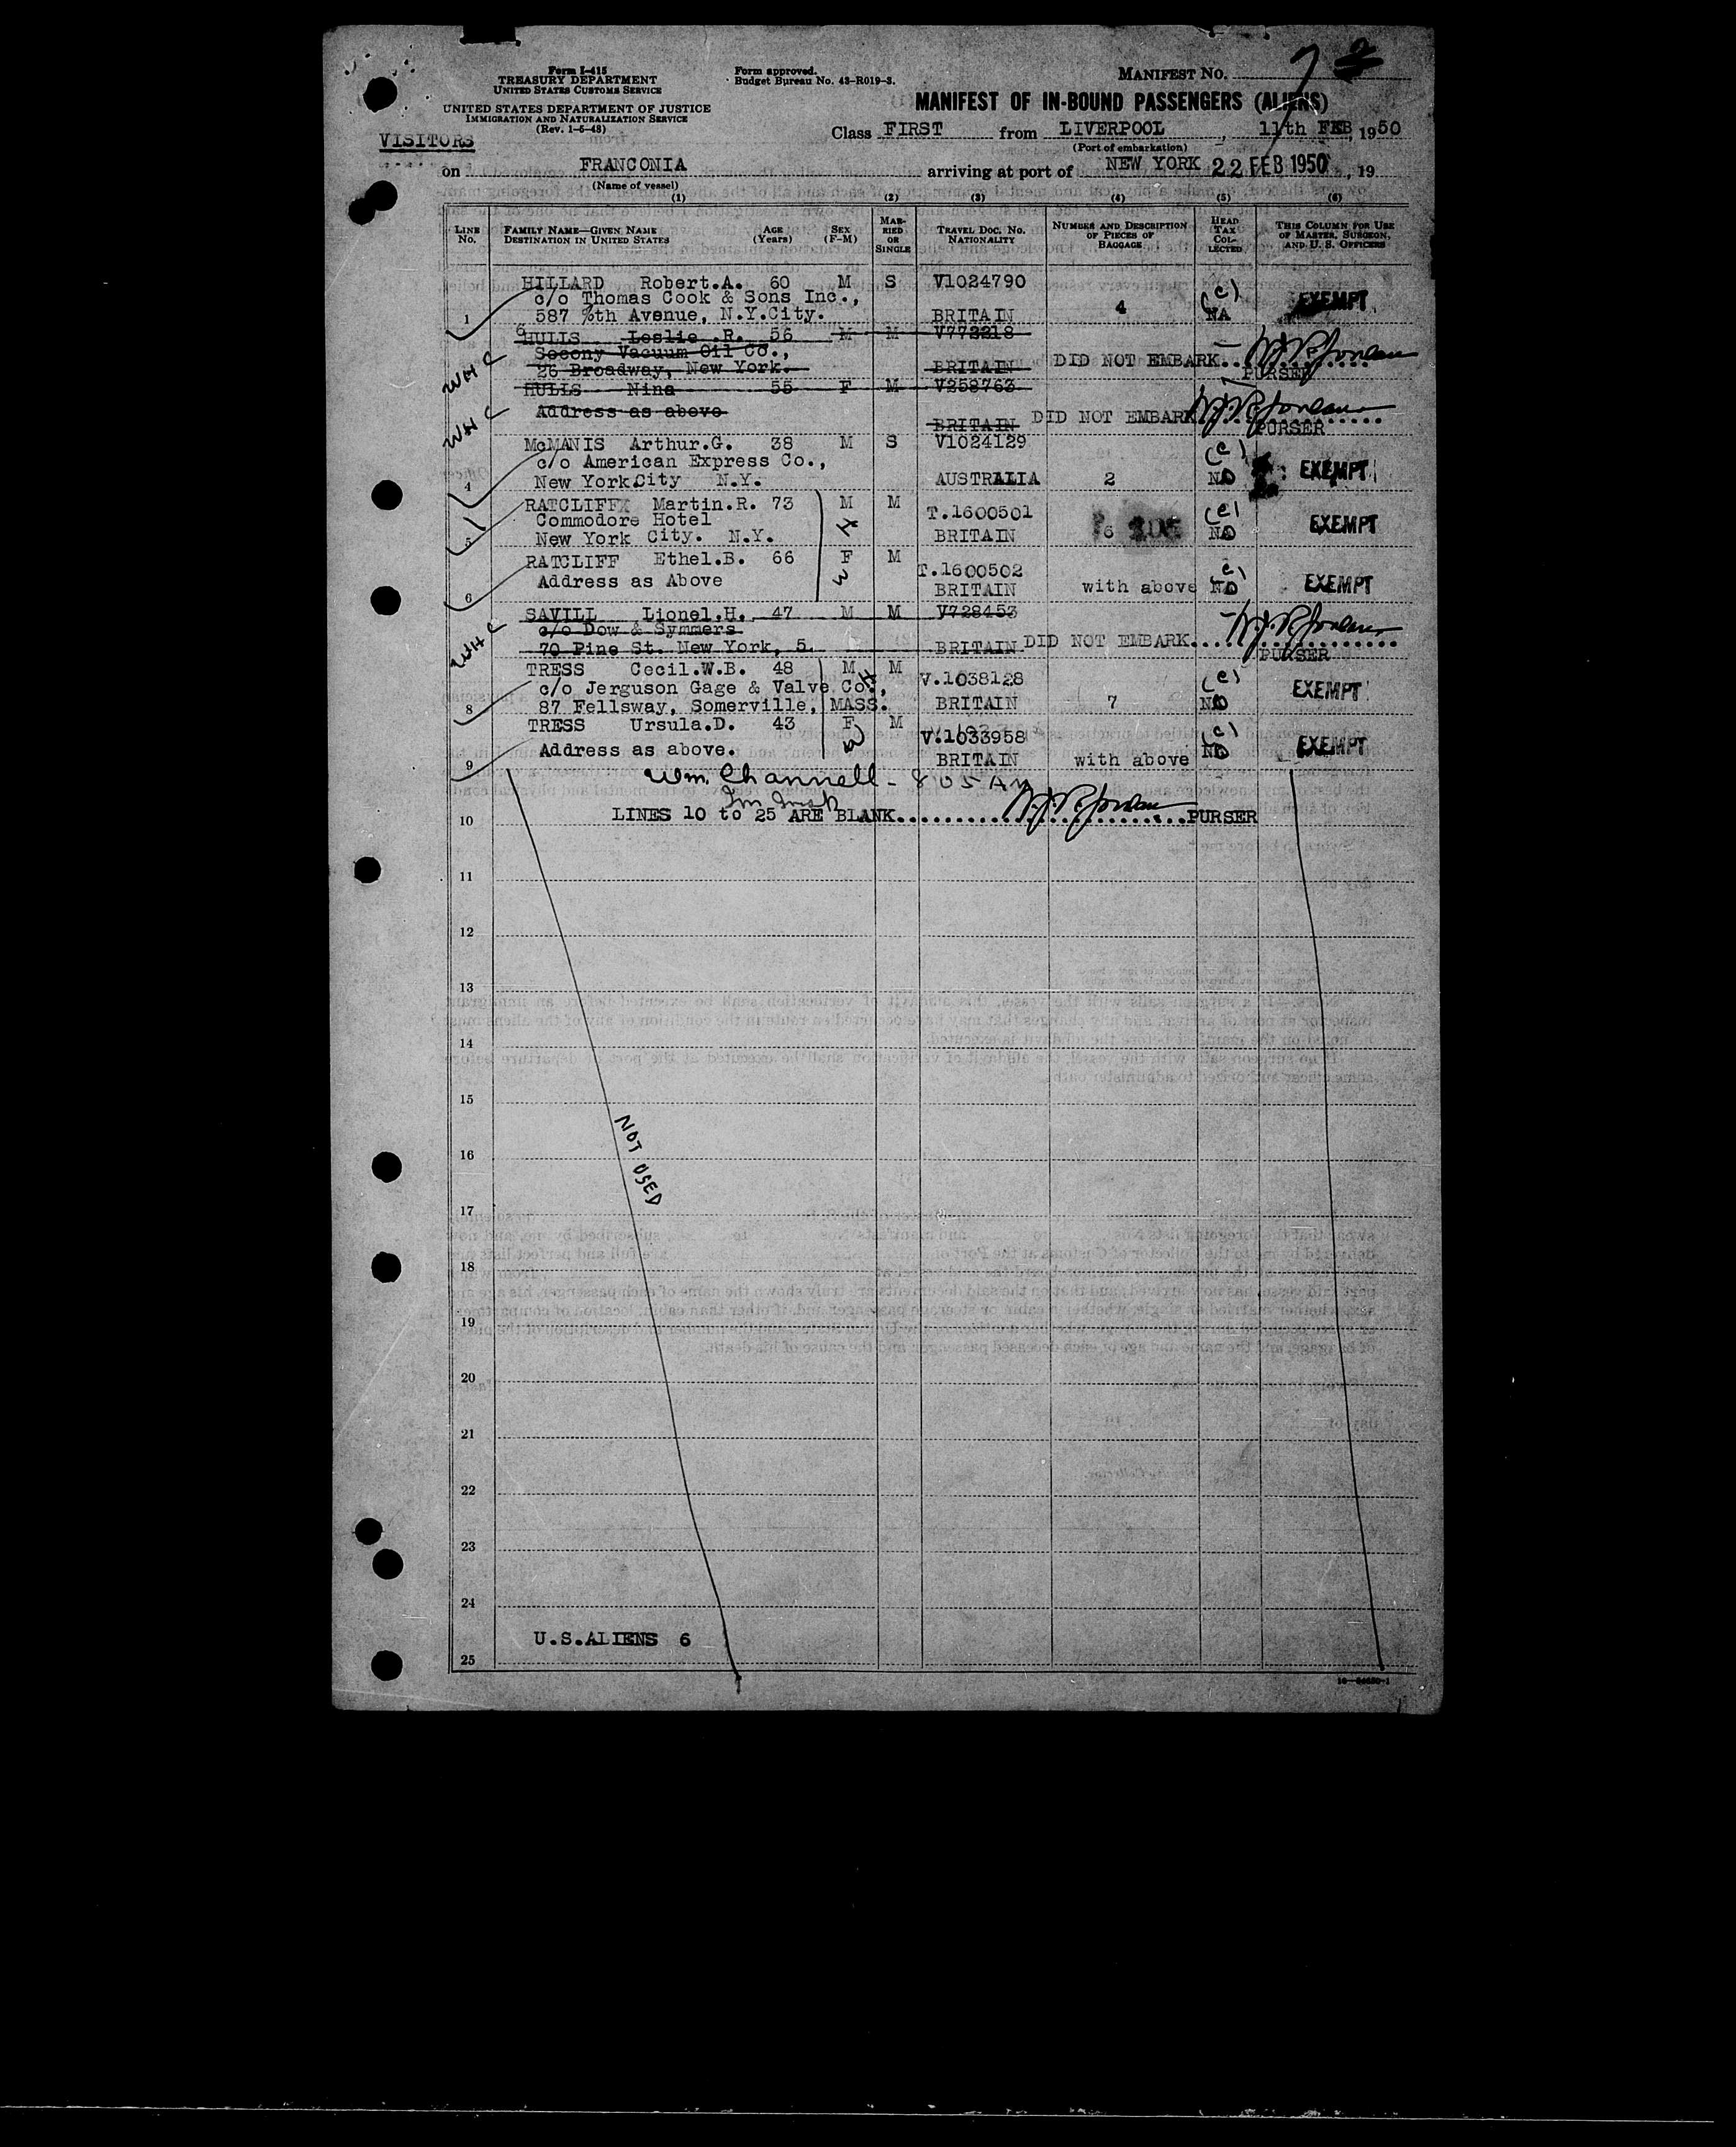 Form I-415
TREASURY DEPARTMENT
UNITED STATES CUSTOMS SERVICE
UNITED STATES DEPARTMENT OF JUSTICE
IMMIGRATION AND NATURALIZATION SERVICE
(Rev. 1-5-48)
Form approved.
Budget Bureau No. 43-R019-3.
MANIFEST NO. 7
MANIFEST OF IN-BOUND PASSENGERS (ALIENS)
VISITORS
Class FIRST from LIVERPOOL, 11th FEB, 1950
(Port of embarkation)
on FRANCONIA arriving at port of NEW YORK 22 FEB 1950, 19
(Name of vessel)
(1) (2) (3) (4) (5) (6)
LINE NO.
FAMILY NAME—GIVEN NAME
DESTINATION IN UNITED STATES
AGE (YEARS)
SEX (F-M)
MARRIED OR SINGLE
TRAVEL DOC. NO.
NATIONALITY
NUMBER AND DESCRIPTION OF PIECES OF BAGGAGE
HEAD TAX COLLECTED
THIS COLUMN FOR USE OF MASTER, SURGEON, AND U. S. OFFICERS
HILLARD Robert.A. 60 M S V1024790
c/o Thomas Cook & Sons Inc., (c) EXEMPT
1 587 %th Avenue, N.Y.City. BRITAIN 4 NA
HULLS Leslie .R. 56 M M V772218
Socony Vacuum Oil Co.,
26 Broadway, New York. BRITAIN DID NOT EMBARK... PURSER
WHC
HULLS Nina 55 F M V258763
Address as above
BRITAIN DID NOT EMBARK PURSER
WHC
McMANIS Arthur.G. 38 M S V1024129
c/o American Express Co., (c)
4 New York City N.Y. AUSTRALIA 2 EXEMPT
RATCLIFF Martin.R. 73 M M T.1600501 (c)
Commodore Hotel
5 New York City. N.Y. BRITAIN 6 EXEMPT
RATCLIFF Ethel.B. 66 F M T.1600502
Address as Above
6 BRITAIN with above EXEMPT
SAVILL Lionel.H. 47 M M V728453
c/o Dow & Symmers
70 Pine St. New York, 5. BRITAIN DID NOT EMBARK.... PURSER
WHC
TRESS Cecil.W.B. 48 M M V.1038128 (c)
c/o Jerguson Gage & Valve Co.,
8 87 Fellsway, Somerville, MASS. BRITAIN 7 EXEMPT
TRESS Ursula.D. 43 F M V.1033958
Address as above.
9 BRITAIN with above EXEMPT
Wm. Channell - 805 AM
10 LINES 10 to 25 ARE BLANK PURSER
11
12
13
14
15
NOT USED
16
17
18
19
20
21
22
23
24
U.S.ALIENS 6
25